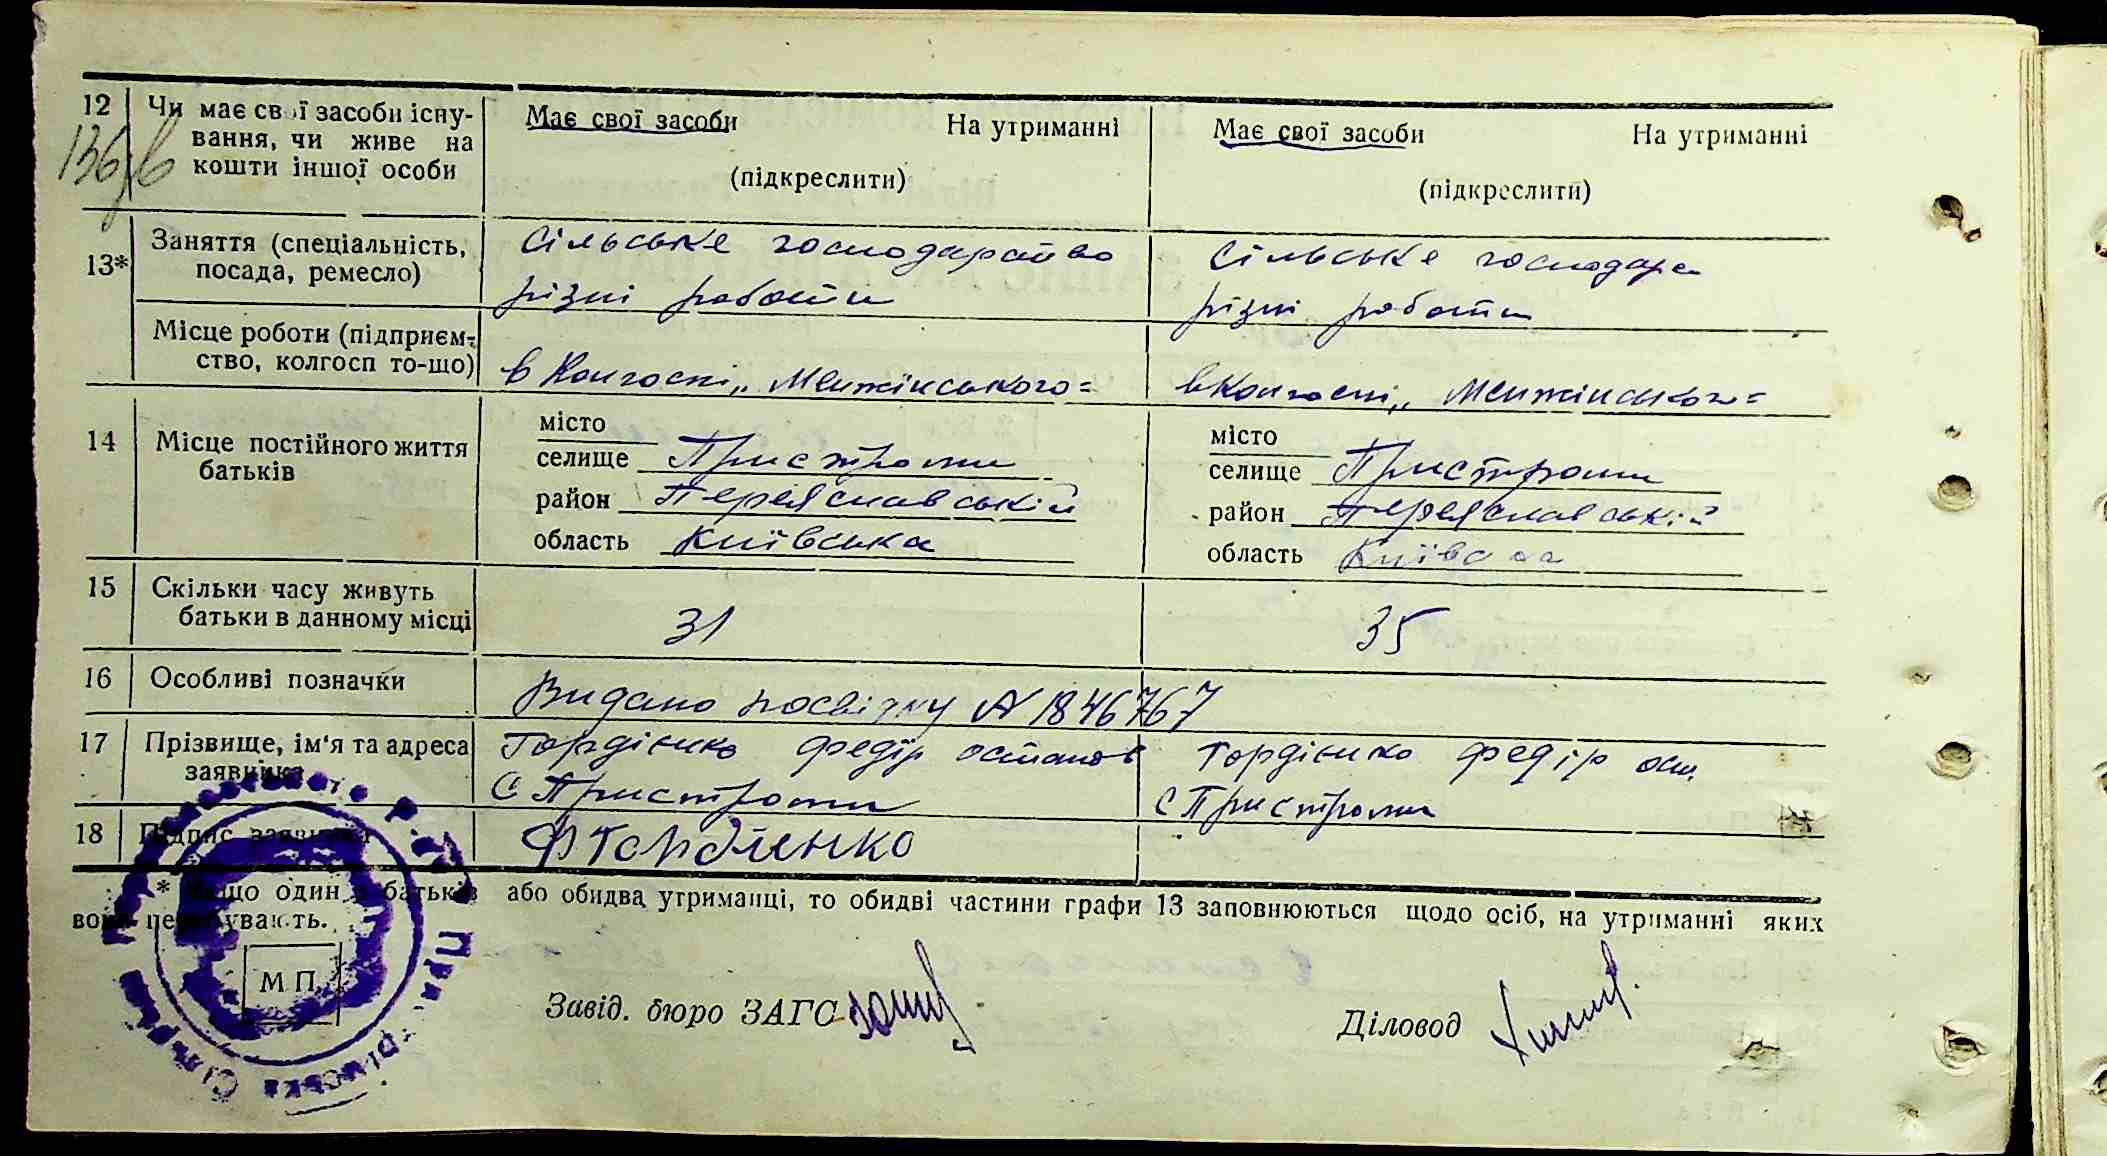 12 Чи має свої засоби існу- Має свої засоби На утриманні Має свої засоби На утриманні
136 зв вання, чи живе на
кошти іншої особи (підкреслити) (підкреслити)
13* Заняття (спеціальність, Сільське господарство Сільське господарс
посада, ремесло) різні роботи різні роботи
Місце роботи (підприєм-
ство, колгосп то-що) в Колгоспі „Менжінського= в Колгоспі „Менжінського=
14 Місце постійного життя місто місто
батьків селище Пристроми селище Пристроми
район Переяславський район Переяславський
область Київська область Київська
15 Скільки часу живуть
батьки в данному місці 31 35
16 Особливі позначки Видано посвідку № 1846767
17 Прізвище, ім'я та адреса Гордієнко федір остапов Гордієнко федір ост.
заявника С Пристроми С Пристроми
18 Підпис заявника ФГордиенко
* Якщо один з батьків або обидва утриманці, то обидві частини графи 13 заповнюються щодо осіб, на утриманні яких
вони перебувають.
М П
Завід. бюро ЗАГС Діловод